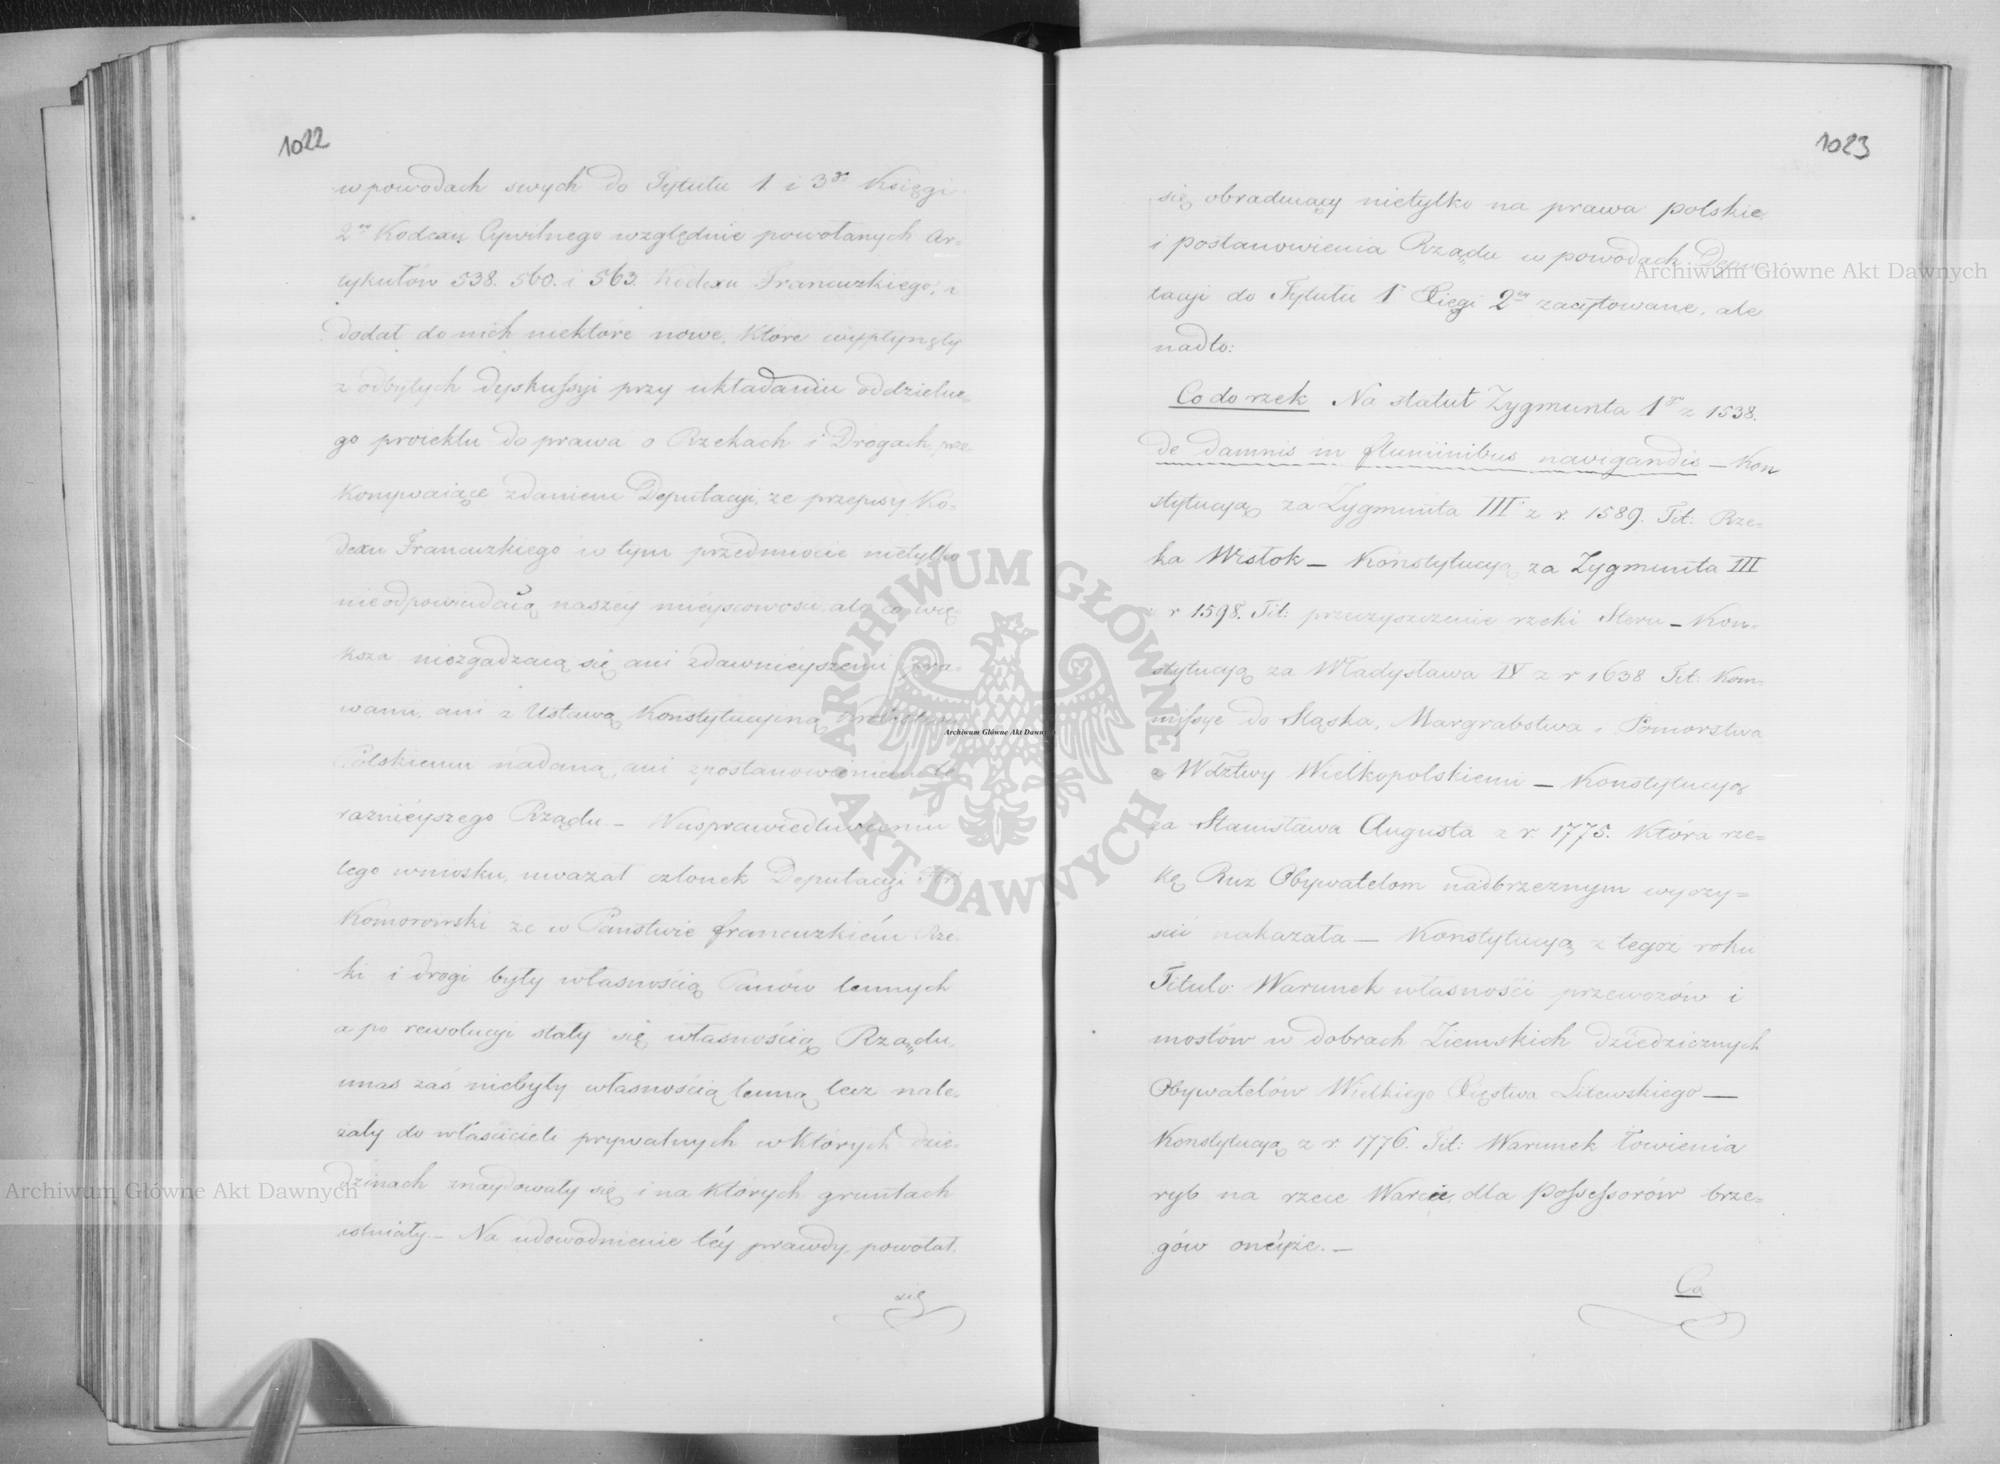 1022
w powodach swych do Tytułu 1 i 3º Księgi
2ᵉʸ Kodexu Cywilnego względnie powołanych Ar-
tykułów 538. 560. i 563. Kodexu Francuzkiego, i
dodał do nich niektóre nowe, które wypłynęły
z odbytych dyskussyi przy układaniu oddzielne-
go proiektu do prawa o Rzekach i Drogach, prze-
konywaiące zdaniem Deputacyi, że przepisy Ko-
dexu Francuzkiego w tym przedmiocie nietylko
nieodpowiadaią naszéy mieyscowości, ale co wię-
ksza niezgadzaią się ani z dawnieyszemi pra-
wami, ani z Ustawą Konstytucyiną Królestwu
Polskiemu nadaną, ani z postanowieniem te-
raznieyszego Rządu. – W usprawiedliwieniu
tego wniosku, uważał członek Deputacyi
Komorowski że w Państwie francuzkiém Rze-
ki i drogi były własnością Panów lennych
a po rewolucyi stały się własnością Rządu,
u nas zaś niebyły własnością lenną lecz nale-
żały do właścicieli prywatnych w których dzie-
dzinach znaydowały się i na których gruntach
istniały. – Na udowodnienie téy prawdy, powołał
się
1023
się obraduiący nietylko na prawa polskie
i postanowienia Rządu w powodach Depu-
tacyi do Tytułu 1º Xięgi 2ᵉʸ zacytowane, ale
nadto:
Co do rzek Na statut Zygmunta 1º z 1538.
de damnis in fluminibus navigandis – Kon
stytucyą za Zygmunta III z r. 1589. Tit: Rze-
ka Wisłok – Konstytucyą za Zygmunta III
z r 1598. Tit: przeczyszczenie rzeki Steru – Kon-
stytucyą za Władysława IV z r 1638 Tit: Kom-
missye do Sląska, Margrabstwa i Pomorstwa
z Wdztwy Wielkopolskiemi – Konstytucyą
za Stanisława Augusta z r. 1775. która rze-
kę Ruz Obywatelom nadbrzeżnym wyczy-
ścić nakazała – Konstytucyą z tegoż roku
Titulo: Warunek własności przewozów i
mostów w dobrach Ziemskich dziedzicznych
Obywatelów Wielkiego Xięstwa Litewskiego –
Konstytucyą z r. 1776. Tit: Warunek łowienia
ryb na rzece Warcie, dla possessorów brze-
gów onéyże. –
Co
Archiwum Główne Akt Dawnych
Archiwum Główne Akt Dawnych
Archiwum Główne Akt Dawnych
ARCHIWUM GŁÓWNE AKT DAWNYCH